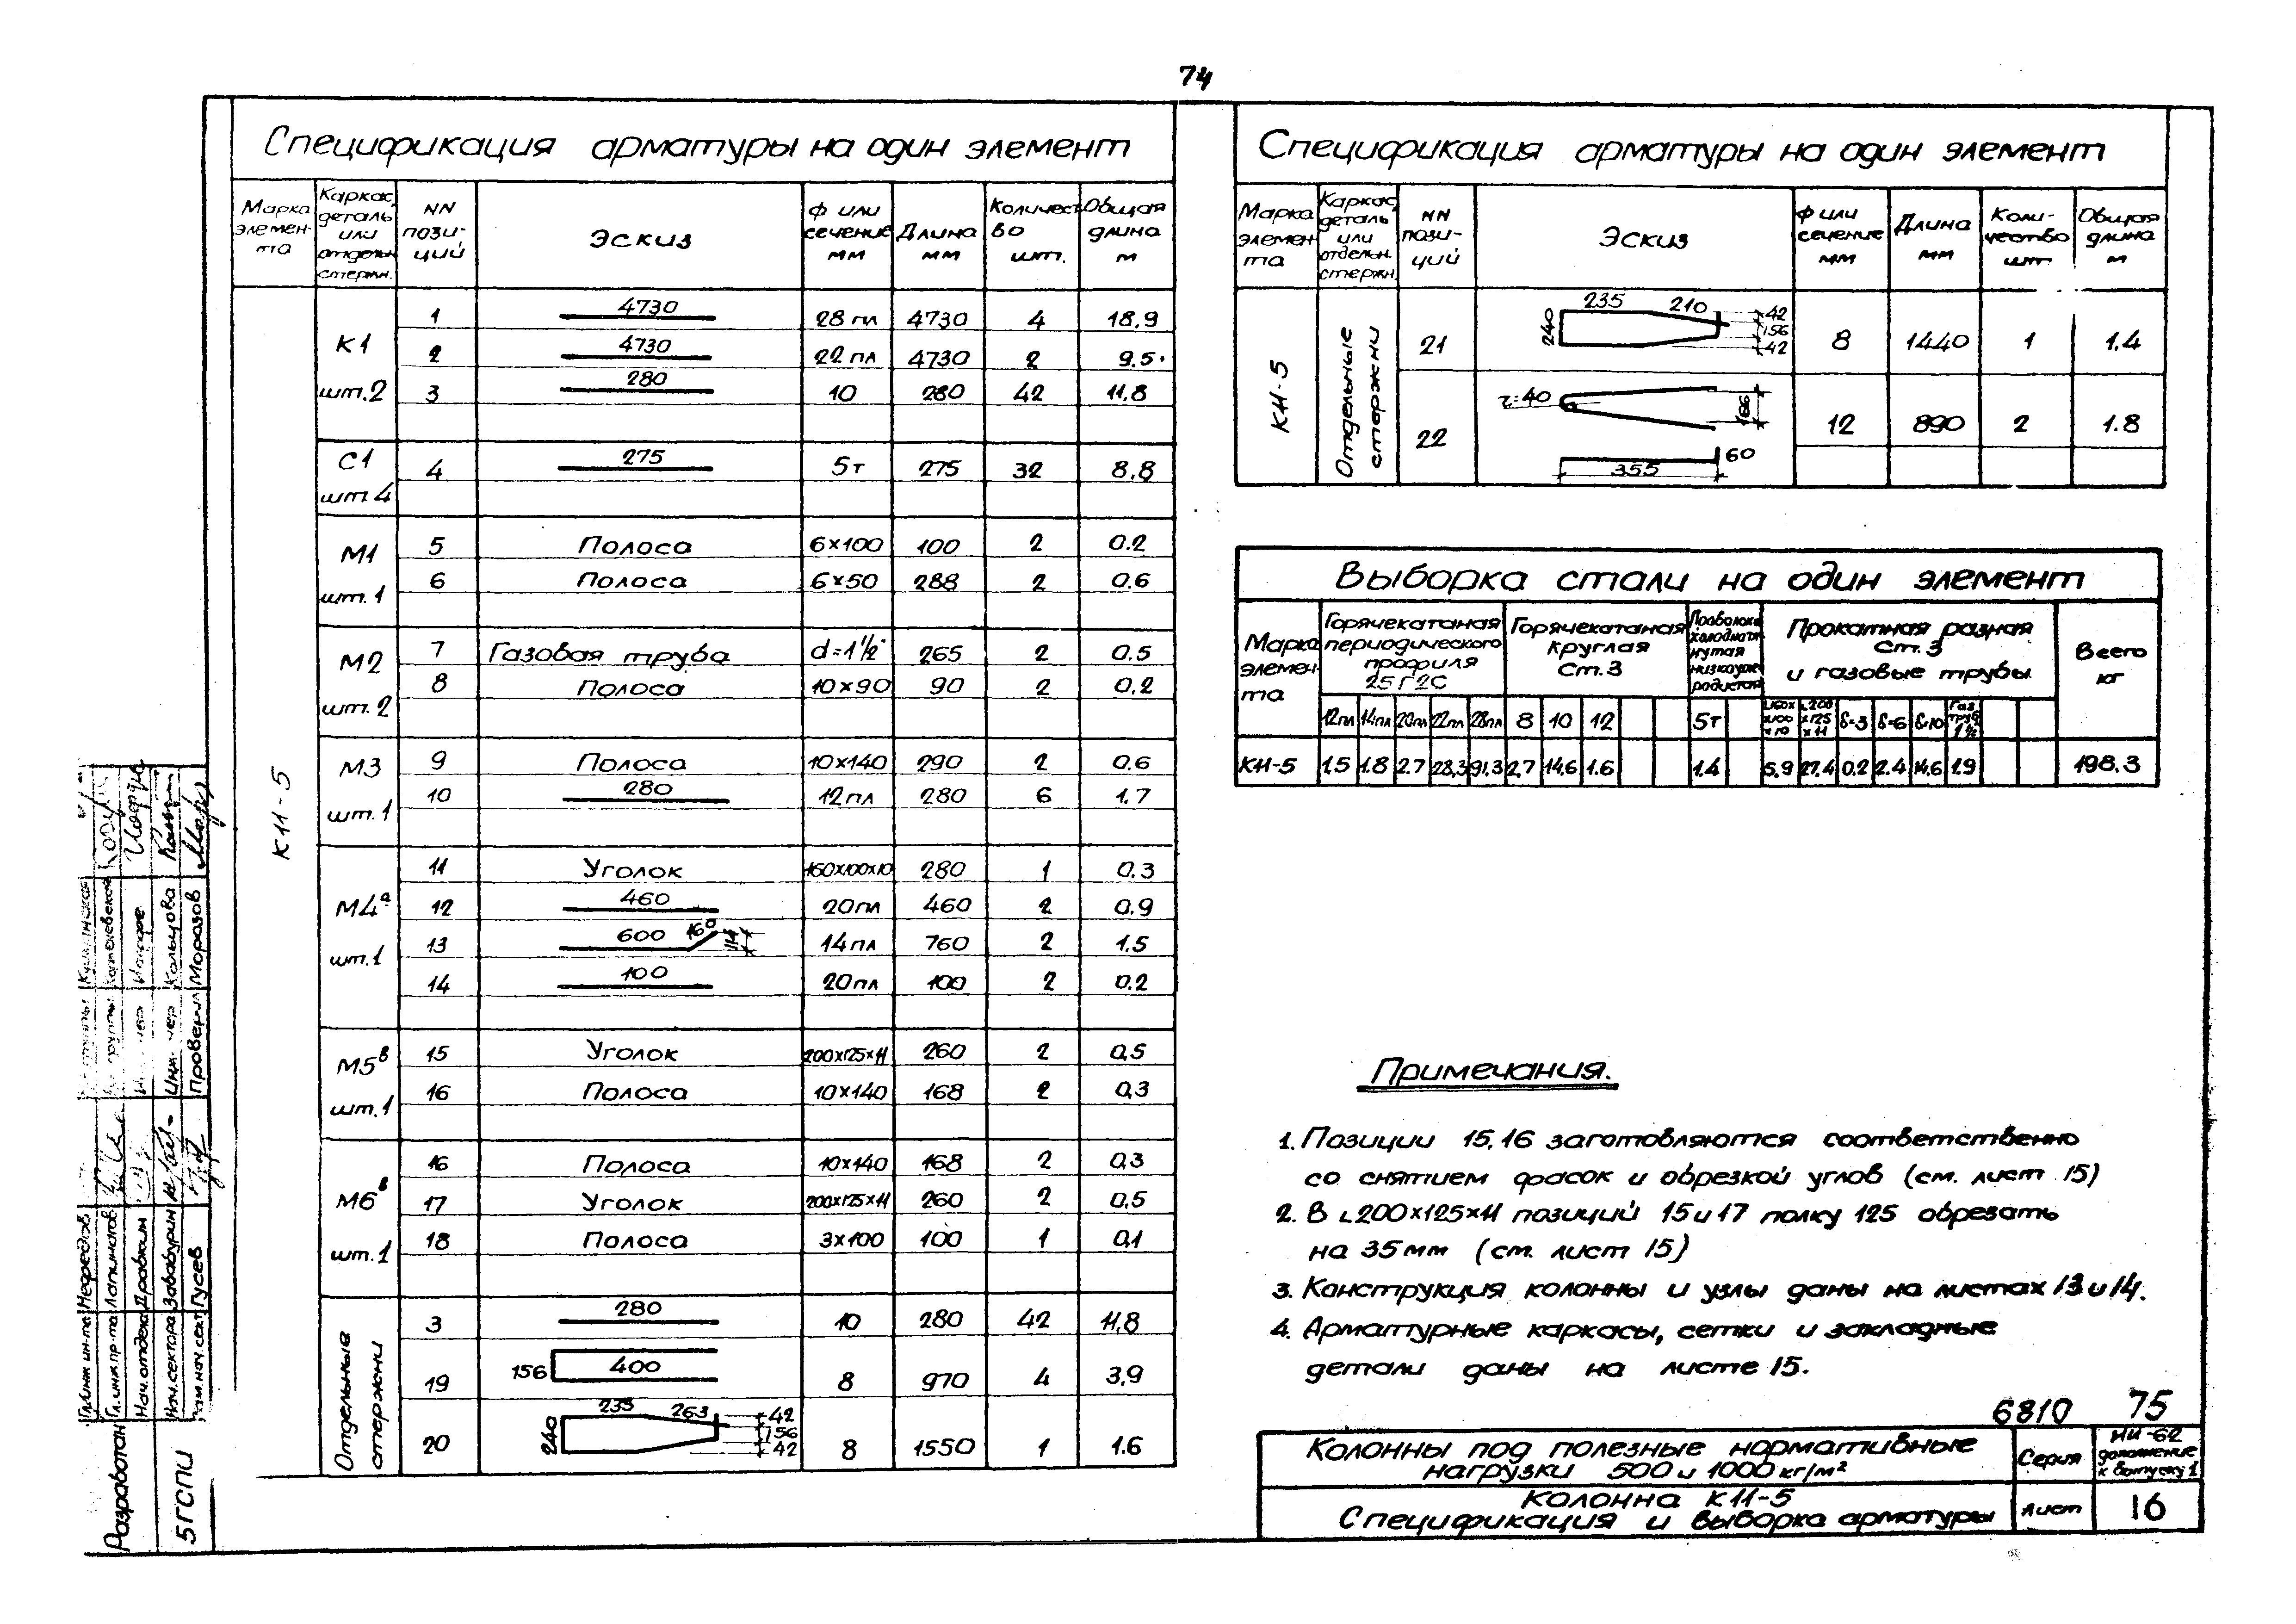 74
Спецификация арматуры на один элемент
Марка элемен-та | Каркас, деталь или отдельн. стержн. | NN пози-ций | Эскиз | ф или сечение мм | Длина мм | Количест во шт. | Общая длина м
К11-5
К1 шт.2
1 | 4730 | 28пл | 4730 | 4 | 18,9
2 | 4730 | 22пл | 4730 | 2 | 9.5
3 | 280 | 10 | 280 | 42 | 11,8
С1 шт 4
4 | 275 | 5т | 275 | 32 | 8,8
М1 шт.1
5 | Полоса | 6×100 | 100 | 2 | 0.2
6 | Полоса | 6×50 | 288 | 2 | 0.6
М2 шт.2
7 | Газовая труба | d=1½" | 265 | 2 | 0.5
8 | Полоса | 10×90 | 90 | 2 | 0,2
М3 шт.1
9 | Полоса | 10×140 | 290 | 2 | 0.6
10 | 280 | 12пл | 280 | 6 | 1.7
М4а шт.1
11 | Уголок | 160×100×10 | 280 | 1 | 0.3
12 | 460 | 20пл | 460 | 2 | 0.9
13 | 600 160 114 | 14пл | 760 | 2 | 1.5
14 | 100 | 20пл | 100 | 2 | 0.2
М5в шт.1
15 | Уголок | 200×125×11 | 260 | 2 | 0,5
16 | Полоса | 10×140 | 168 | 2 | 0,3
М6в шт.1
16 | Полоса | 10×140 | 168 | 2 | 0,3
17 | Уголок | 200×125×11 | 260 | 2 | 0,5
18 | Полоса | 3×100 | 100 | 1 | 0,1
Отдельные стержни
3 | 280 | 10 | 280 | 42 | 11,8
19 | 156 400 | 8 | 970 | 4 | 3,9
20 | 240 235 263 42 156 42 | 8 | 1550 | 1 | 1.6
Спецификация арматуры на один элемент
Марка элемен та | Каркас, деталь или отдельн. стержн. | NN пози-ций | Эскиз | ф или сечение мм | Длина мм | Коли-чество шт | Общая длина м
К11-5
Отдельные стержни
21 | 240 235 210 42 156 42 | 8 | 1440 | 1 | 1.4
22 | r=40 186 355 60 | 12 | 890 | 2 | 1.8
Выборка стали на один элемент
Марка элемен-та | Горячекатаная периодического профиля 25Г2С | Горячекатаная круглая Ст.3 | Проволока холоднотянутая низкоуглеродистая | Прокатная разная Ст.3 и газовые трубы | Всего кг
12пл | 14пл | 20пл | 22пл | 28пл | 8 | 10 | 12 | 5т | ∟160× ×100 ×10 | ∟200 ×125 ×11 | δ=3 | δ=6 | δ=10 | Газ. труб. 1½
К11-5 | 1,5 | 1.8 | 2.7 | 28,3 | 91,3 | 2,7 | 14,6 | 1.6 | 1.4 | 5,9 | 27.4 | 0.2 | 2.4 | 14,6 | 1.9 | 198.3
Примечания.
1. Позиции 15,16 заготовляются соответственно
со снятием фасок и обрезкой углов (см. лист 15)
2. В ∟200×125×11 позиций 15 и 17 полку 125 обрезать
на 35 мм (см. лист 15)
3. Конструкция колонны и узлы даны на листах 13 и 14.
4. Арматурные каркасы, сетки и закладные
детали даны на листе 15.
6810 75
Колонны под полезные нормативные
нагрузки 500 и 1000 кг/м²
Серия
ИИ-62
дополнение
к выпуску 1
Колонна К11-5
Спецификация и выборка арматуры
Лист
16
Разработан
5 ГСПИ
Гл.инж ин-та Нефедов
Гл.инж.пр-та Лапшистов
Нач.отдела Драбкин
Нач.сектора Завадурин
Зам.нач.сект. Гусев
Кольцова
Проверил Моразов